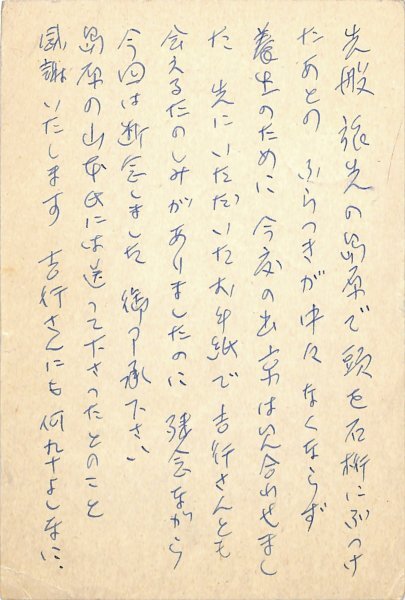 先般 旅先の島原で頭を石桁にぶつけ
たあとの ふらつきが中々なくならず
養生のために 今度の出京は見合わせまし
た 先にいただいたお手紙で吉行さんとも
会えるたのしみがありましたのに 残念ながら
今回は断念しました 御了承下さい
島原の山本氏には送って下さったとのこと
感謝いたします 吉行さんにも何卒よしなに.